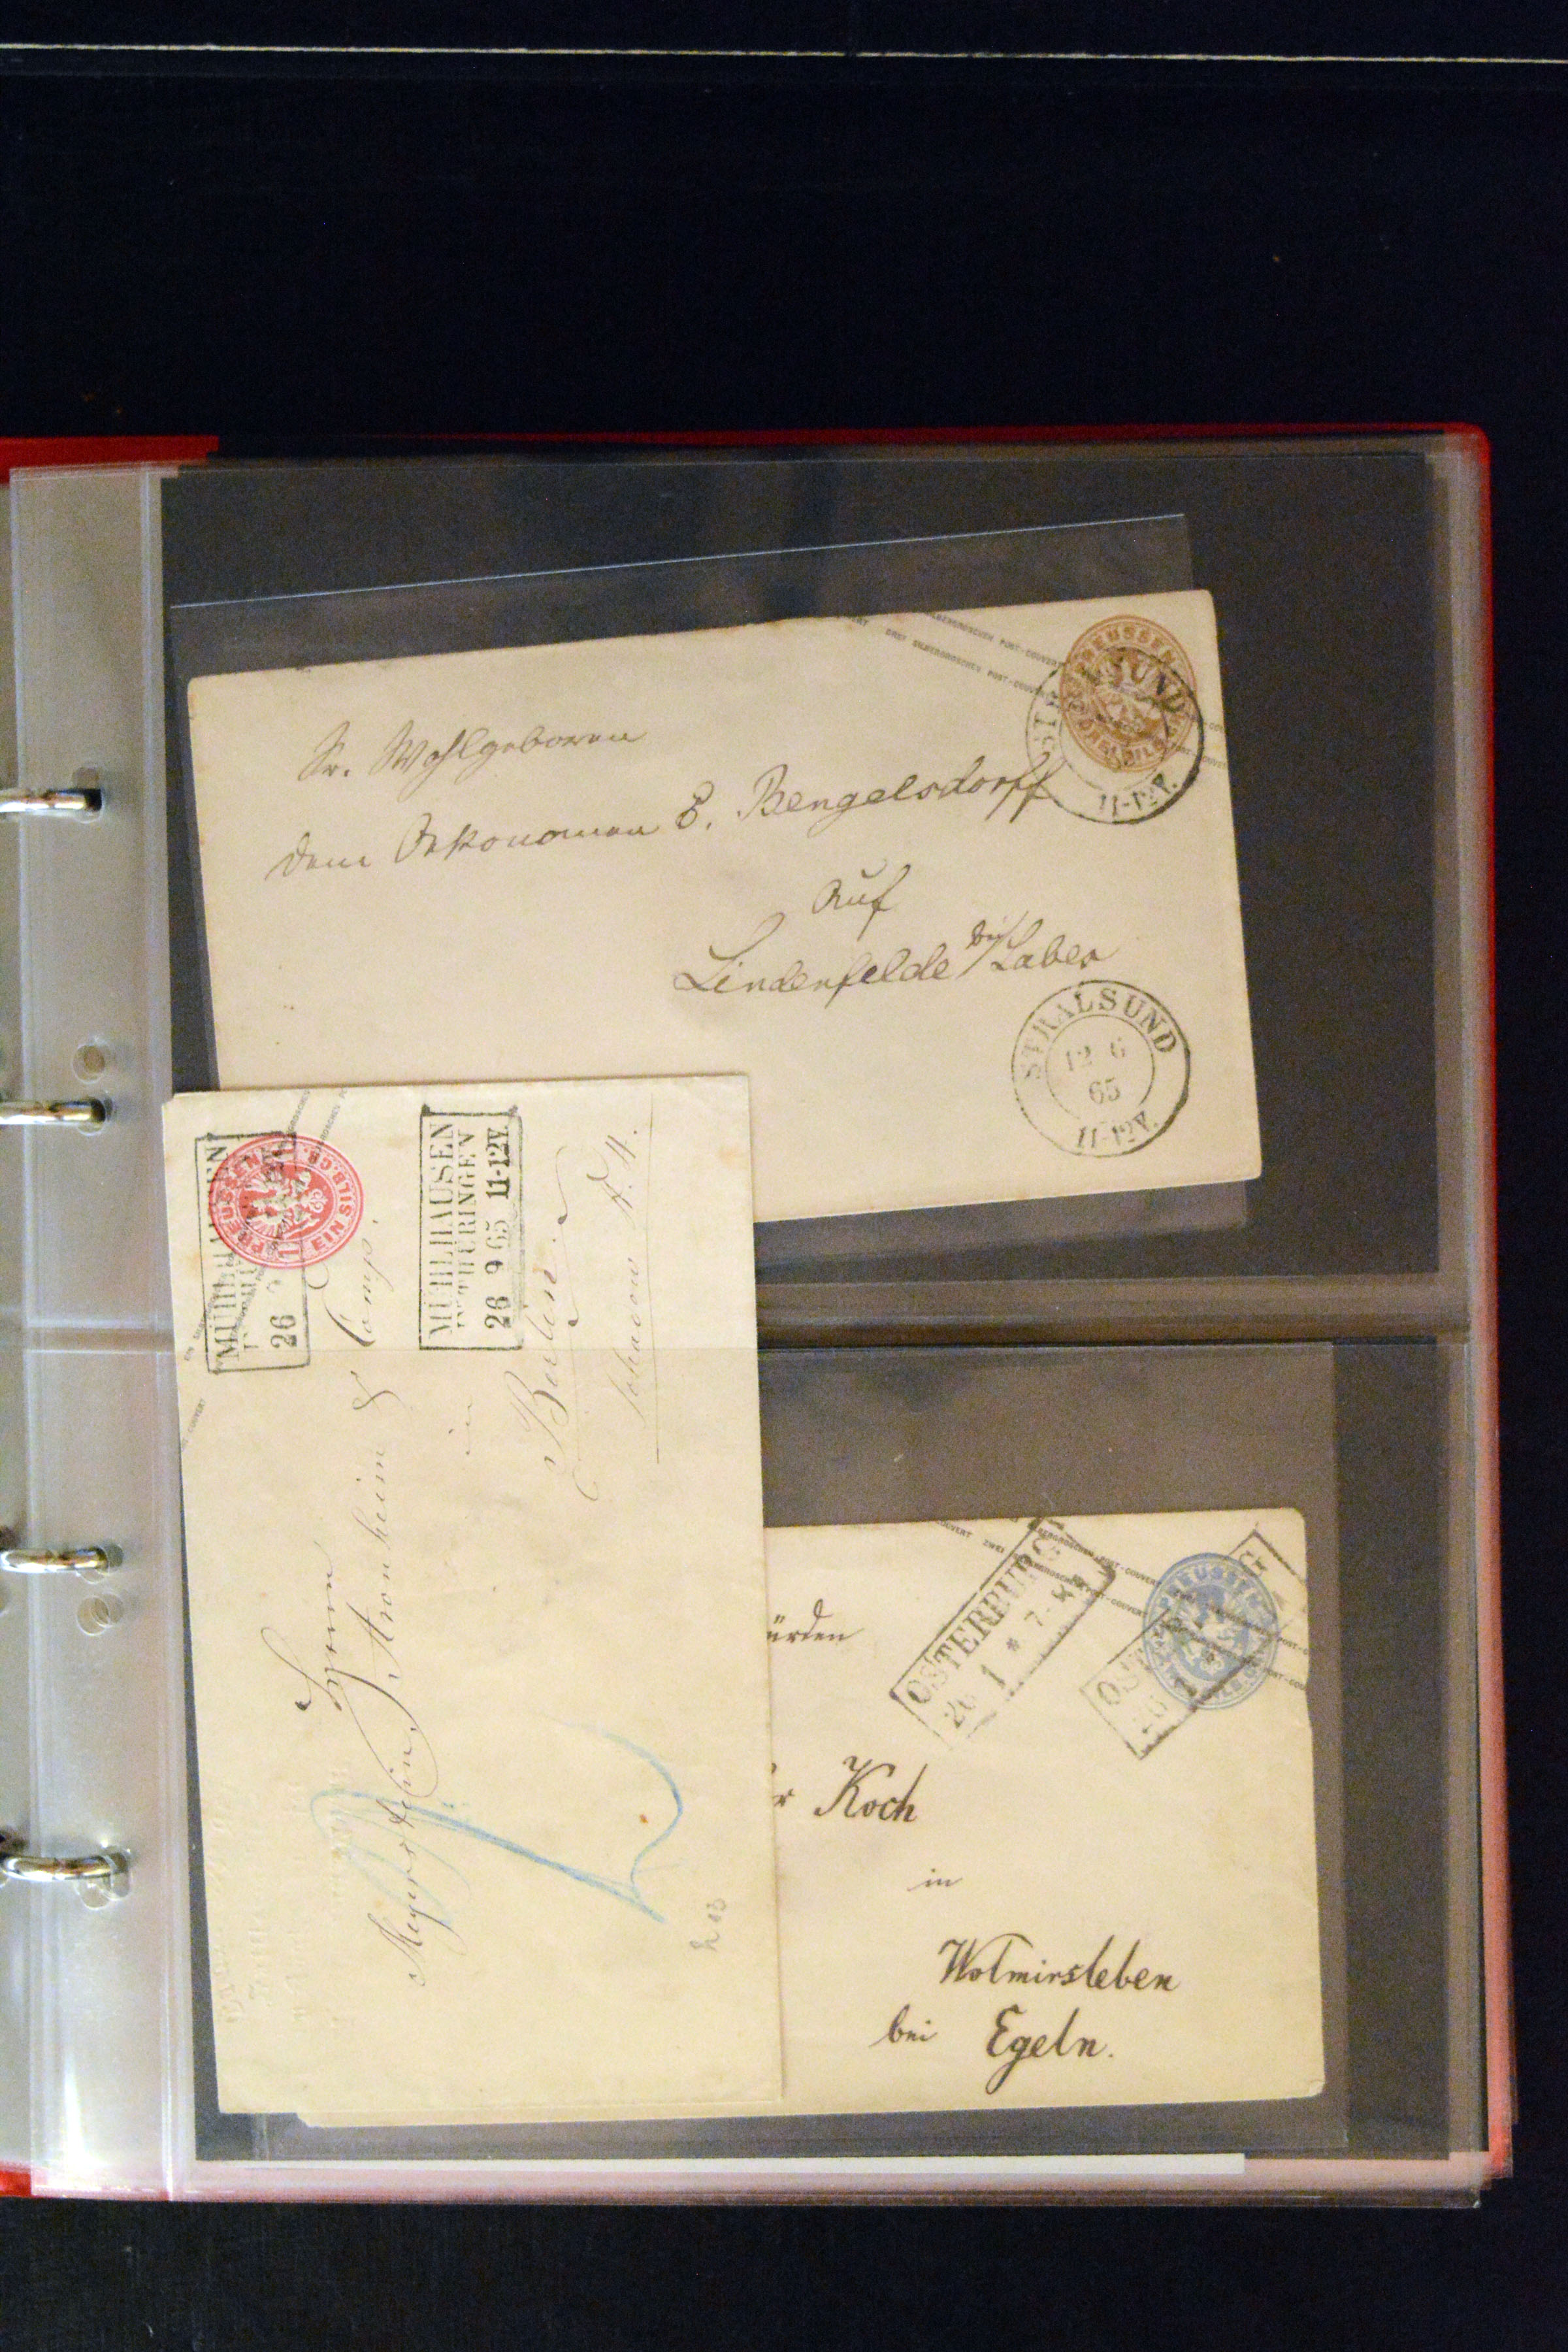 SILBERGROSCHEN POST-COUVERT
DREI SILBERGROSCHEN POST-COUVERT
PREUSSEN
DREI SILB.
11-12V.
Sr. Wohlgeboren
dem Oekonomen E. Bengelsdorff
Auf
Lindenfelde bei/Labes
STRALSUND
12 6
65
11-12V.
MÜHLHAUSEN
26
PREUSSEN
EIN SILB.GR.
MÜHLHAUSEN
IN THÜRINGEN
26 9 65 11-12V.
Herren
Meyerstein, Stronheim & Comp.
in
Berlin
COUVERT ZWEI SILBERGROSCHEN POST-COUVERT
OSTERBURG
26 1 * 7-
PREUSSEN
SILB.GR.
OST G
26 1 *
ürden
r Koch
in
Wolmirsleben
bei Egeln.